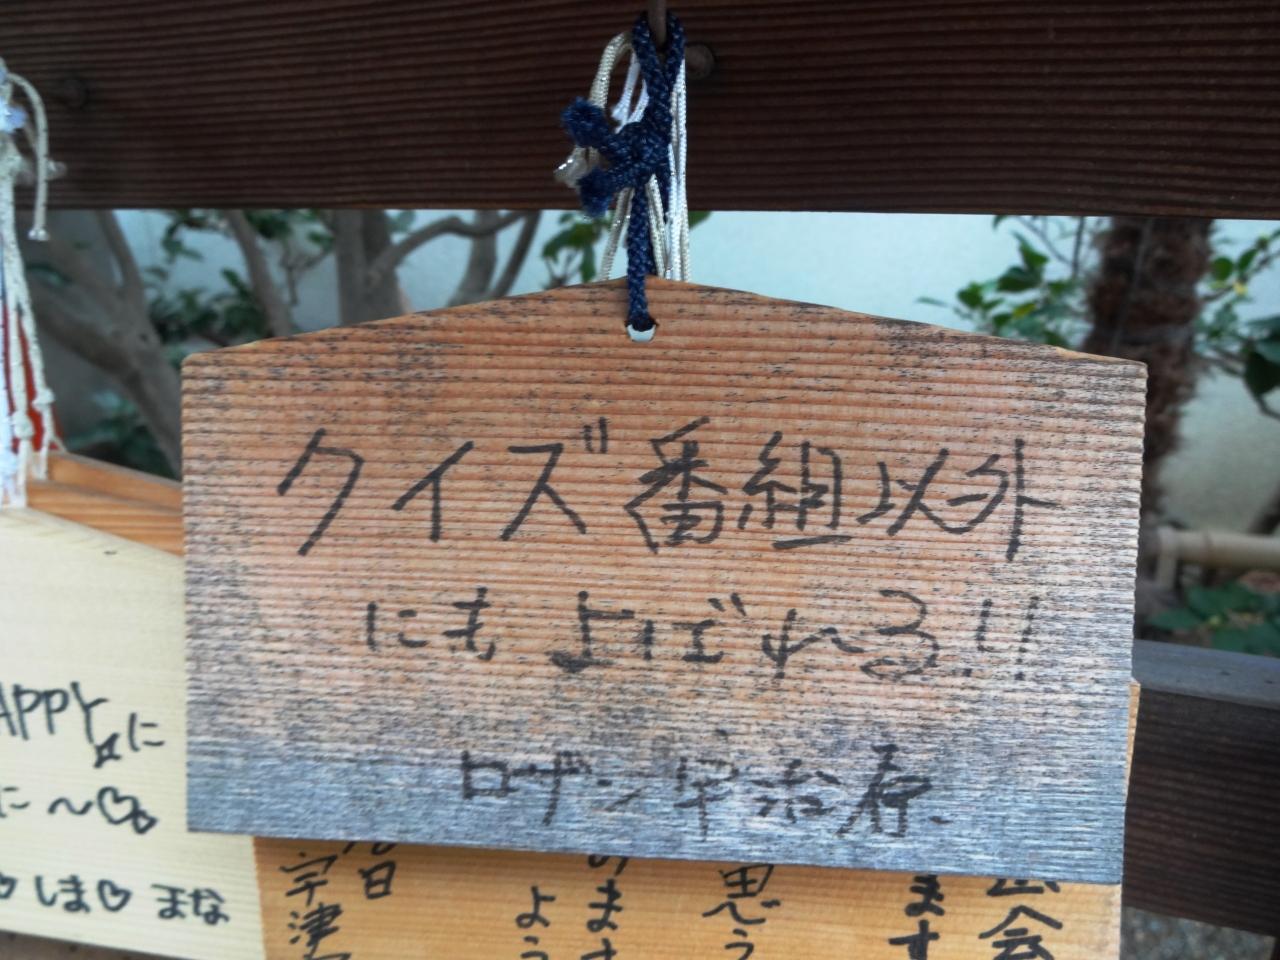 クイズ番組以外
にもよばれる!!
ロザン宇治原
APPY☆に
に〜♡
♡しま♡まな
日
宇津
のます
よう
ます
会